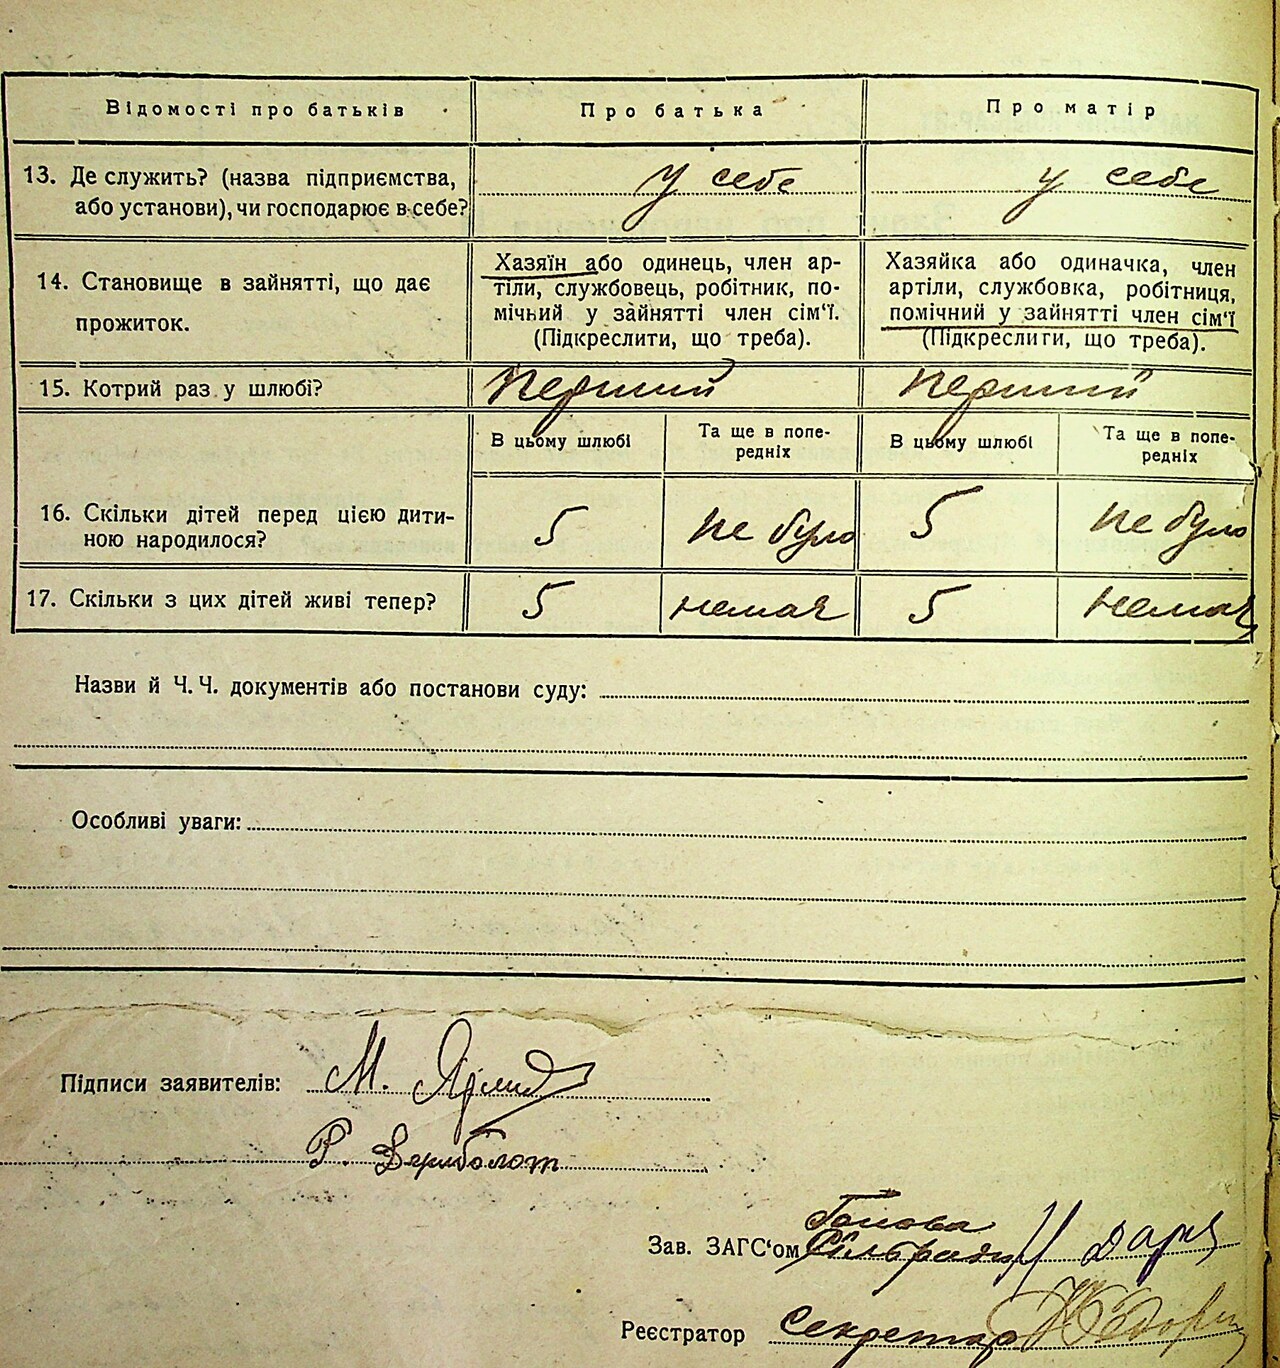 Відомості про батьків Про батька Про матір
13. Де служить? (назва підприємства, або установи), чи господарює в себе? у себе у себе
14. Становище в зайнятті, що дає прожиток.
Хазяїн або одинець, член ар-
тіли, службовець, робітник, по-
мічний у зайнятті член сім‘ї.
(Підкреслити, що треба).
Хазяйка або одиначка, член
артіли, службовка, робітниця,
помічний у зайнятті член сім‘ї
(Підкреслити, що треба).
15. Котрий раз у шлюбі? перший перший
В цьому шлюбі Та ще в попе-редніх В цьому шлюбі Та ще в попе-редніх
16. Скільки дітей перед цією дити-
ною народилося? 5 не було 5 не було
17. Скільки з цих дітей живі тепер? 5 немає 5 немає
Назви й Ч. Ч. документів або постанови суду:
Особливі уваги:
Підписи заявителів: М.
Р. Вериболот
Голова
Зав. ЗАГС‘ом Сільради
Реєстратор Секретар